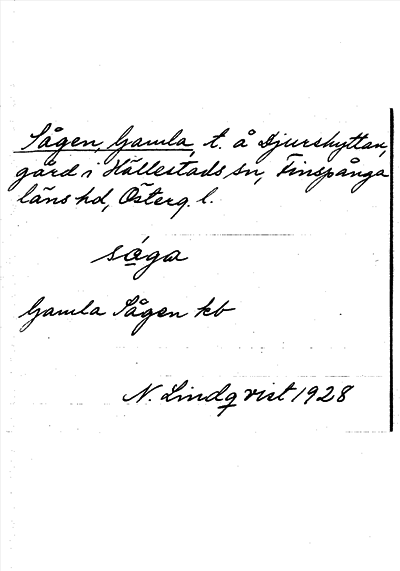 Sågen, Gamla, t. å Djurshyttan,
gård i Hällestads sn, Finspånga
läns hd, Österg. l.
såga
Gamla Sågen kb
N. Lindqvist 1928